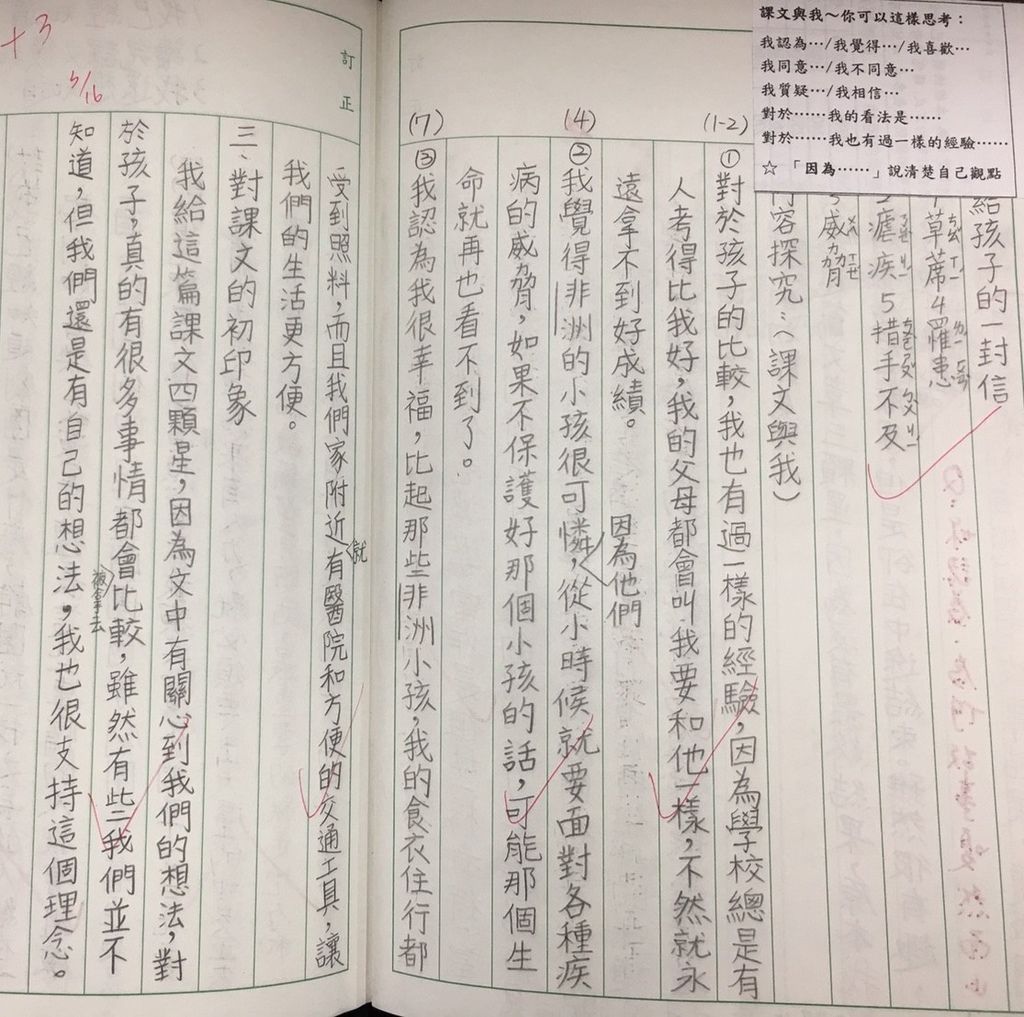 課文與我～你可以這樣思考：
我認為…/我覺得…/我喜歡…
我同意…/我不同意…
我質疑…/我相信…
對於……我的看法是……
對於……我也有過一樣的經驗……
☆ 「因為……」說清楚自己觀點
給孩子的一封信
草蓆 4 罹患
瘧疾 5 措手不及
威脅
容探究：（課文與我）
(1-2)
①對於孩子的比較，我也有過一樣的經驗，因為學校總是有
人考得比我好，我的父母都會叫我要和他一樣，不然就永
遠拿不到好成績。
因為他們
(4)
②我覺得非洲的小孩很可憐，從小時候就要面對各種疾
病的威脅，如果不保護好那個小孩的話，可能那個生
命就再也看不到了。
(7)
③我認為我很幸福，比起那些非洲小孩，我的食衣住行都
訂正
就
受到照料，而且我們家附近有醫院和方便的交通工具，讓
我們的生活更方便。
三、對課文的初印象
我給這篇課文四顆星，因為文中有關心到我們的想法，對
於孩子，真的有很多事情都會比較，雖然有些我們並不
被拿去
知道，但我們還是有自己的想法，我也很支持這個理念。
+3
5/16